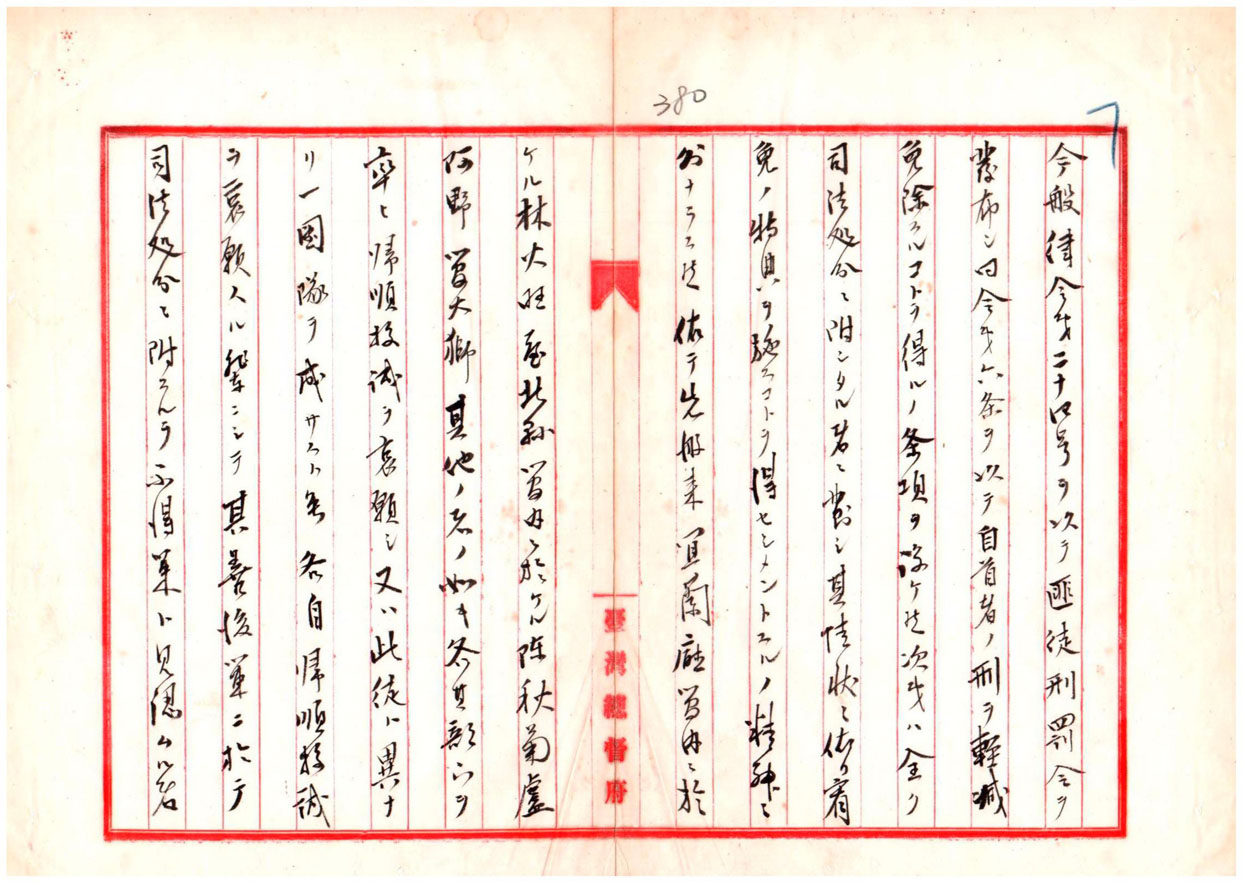 380
今般律令第二十四号ヲ以テ匪徒刑罰令ヲ
発布シ同令第六条ヲ以テ自首者ノ刑ヲ軽減
免除スルコトヲ得ルノ条項ヲ設ケラレ次第ハ全ク
司法処分ニ附シタル者ニ対シ其情状ニ依リ宥
免ノ特典ヲ施スコトヲ得セシメントスルノ精神ニ
外ナラス 依テ先般来宜蘭庁管内ニ於
ケル林火旺台北県管内ニ於ケル陳秋菊盧
阿野簡大獅其他ノ者ノ如キ各其部下ヲ
率ヒ帰順投誠ヲ哀願シ又ハ此徒ト異ナ
リ一団隊ヲ成サスト各自帰順投誠
ヲ哀願スル輩ニシテ其善後策ニ於テ
司法処分ニ附スルヲ不得策ト見認ムル者
臺灣總督府